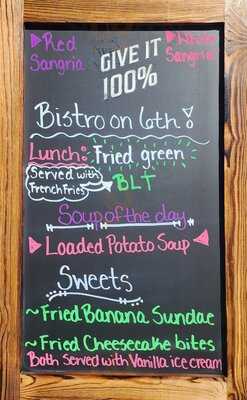 Red
Sangria
White
Sangria
GIVE IT
100%
Bistro on 6th!
Lunch: Fried green
BLT
Served with
French Fries
Soup of the day
Loaded Potato Soup
Sweets
~Fried Banana Sundae
~Fried Cheesecake bites
Both Served with Vanilla ice cream